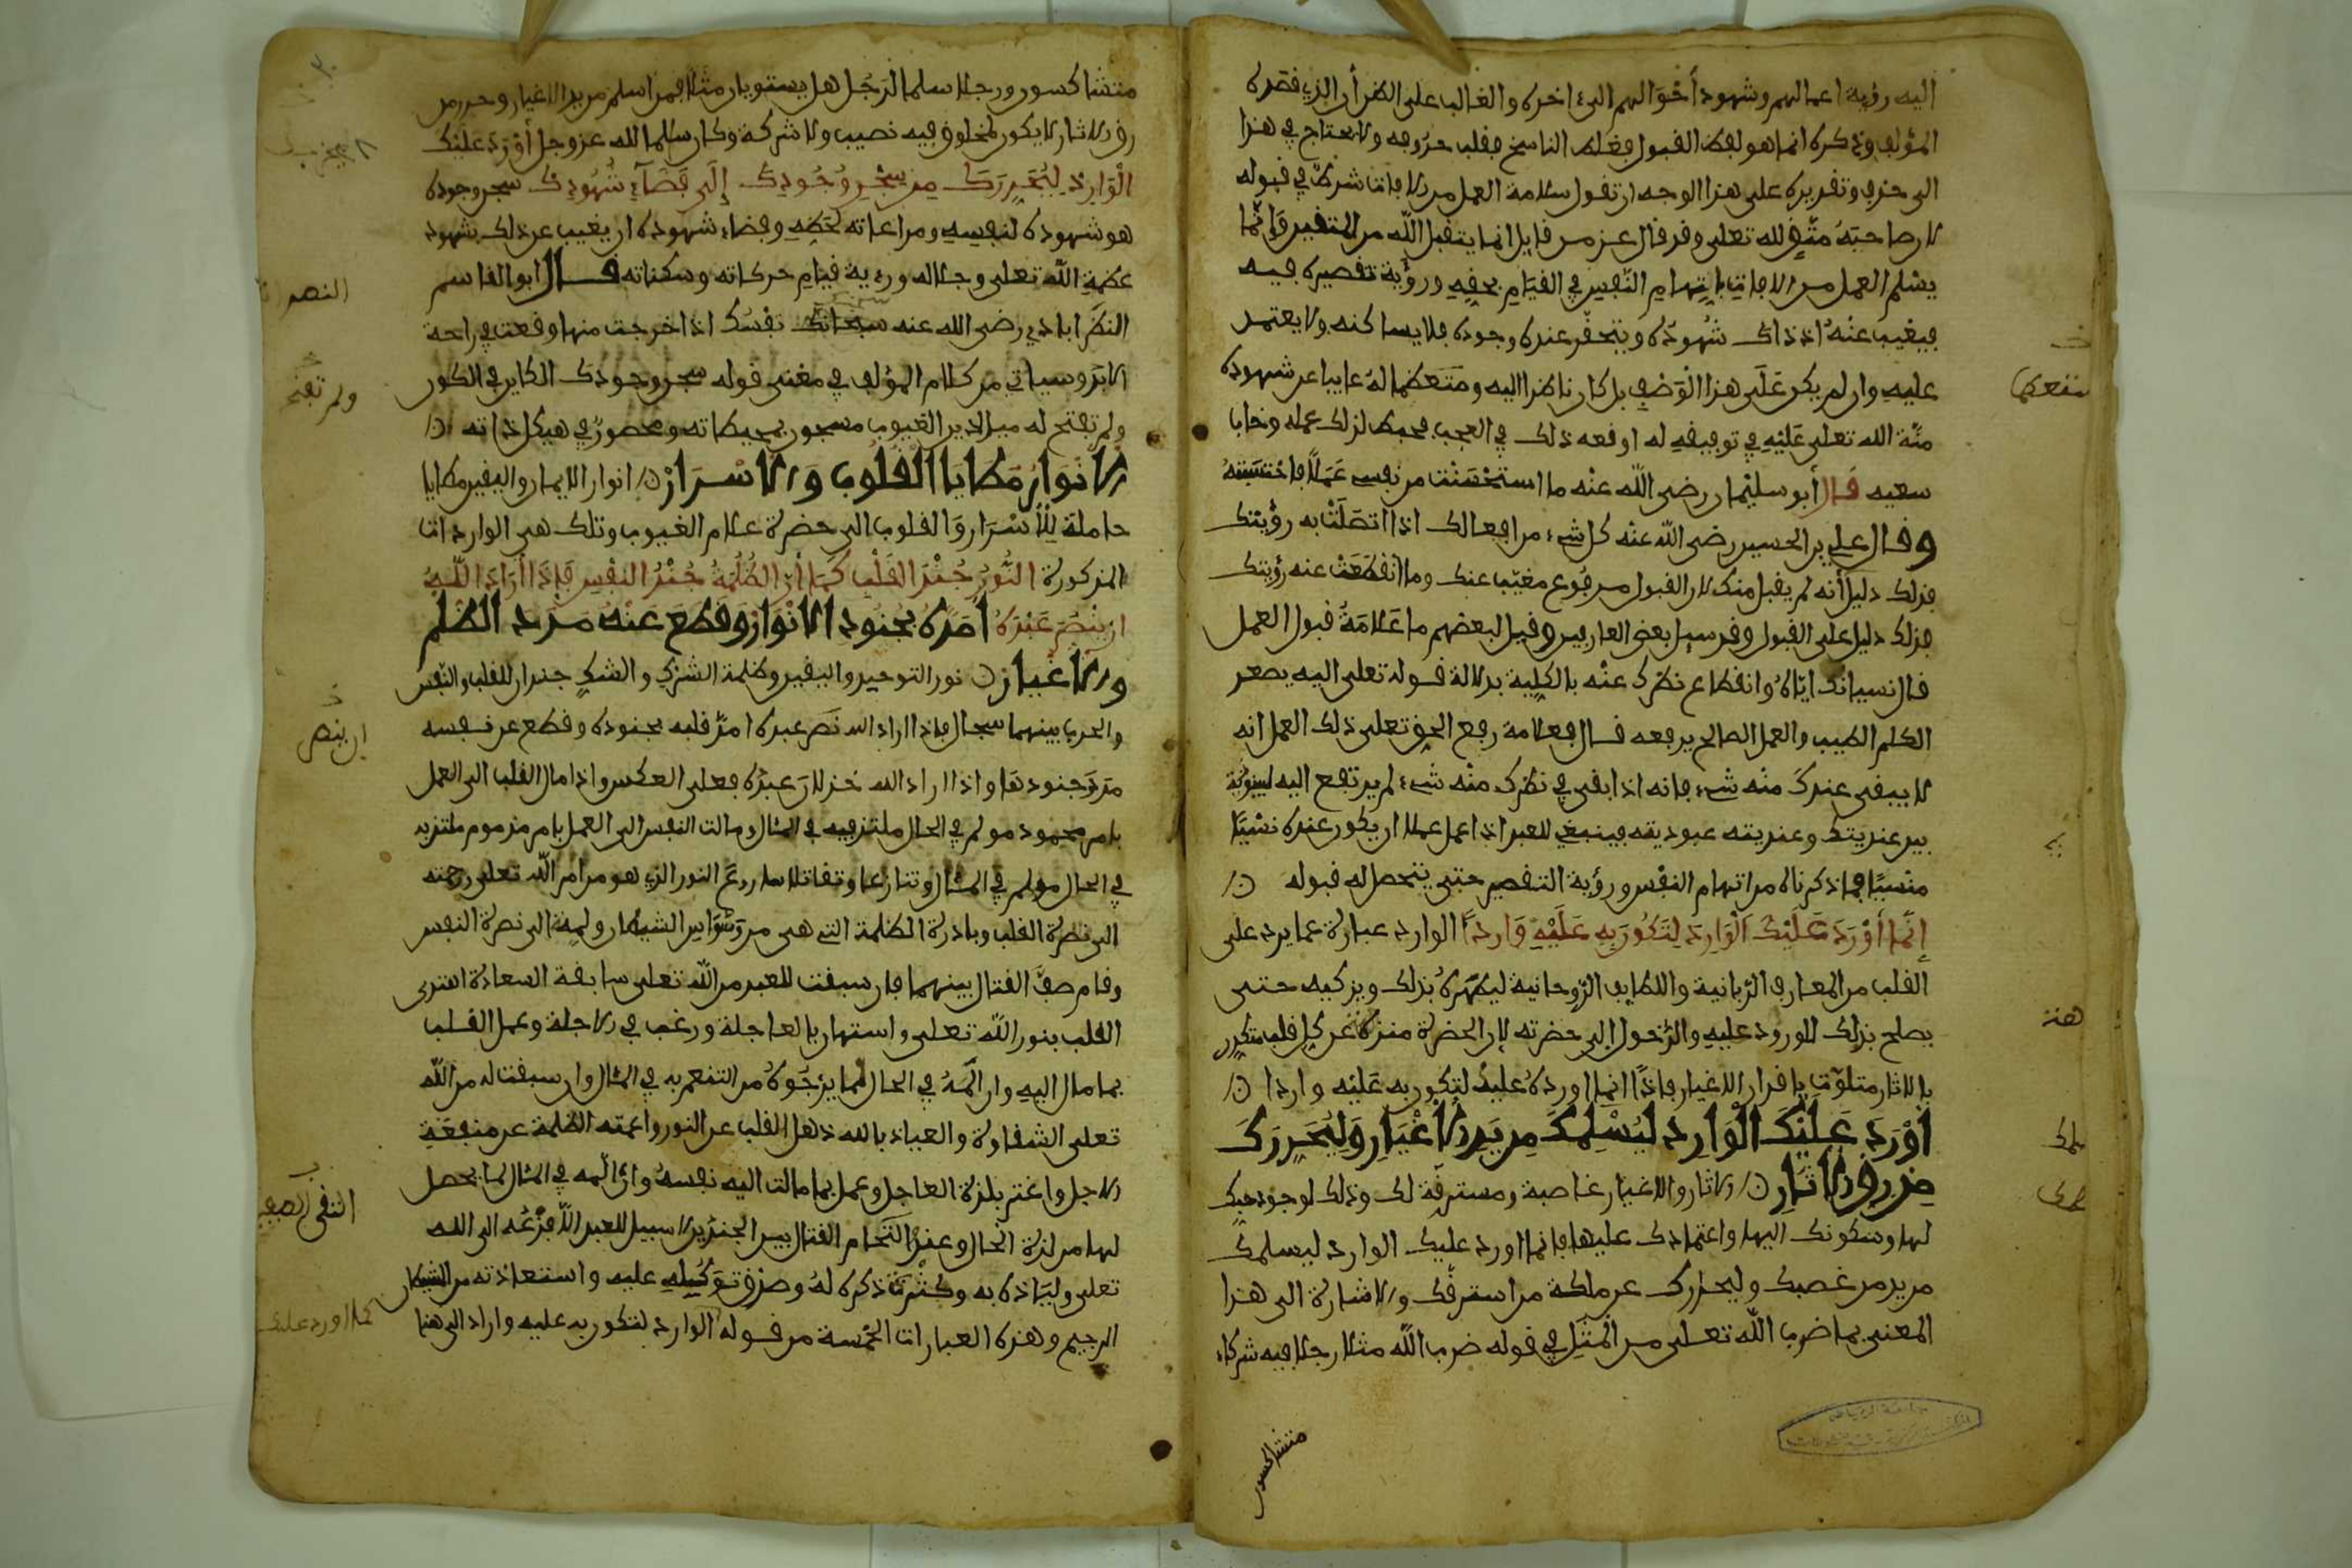 اليه رؤية اعمالهم وشهود أحوالهم الى ءاخره والغالب على الظن أن الذي قصده
المؤلف وذكره انما هو لفظ القبول فغلط الناسخ فقلب حروفه ولا يحتاج في هذا
الى حذف وتقديره على هذا الوجه ان تقول سلامة العمل من الافات شرط في قبوله
لان صاحبه متق لله تعلى وقد قال عز من قايل انما يتقبل الله من المتقين وإنما
يسلم العمل من الافات باتهام النفس في القيام بحقه ورؤية تقصيره فيه
فيغيب عنه اذ ذاك شهوده ويتحقر عنده وجوده فلا يساكنه ولا يعتمد
عليه وان لم يكن على هذا الوصف بل كان ناظرا اليه ومتعظما له غايبا عن شهوده
منة الله تعلى عليه في توفيقه له اوقعه ذلك في العجب فحبط لذلك عمله وخاب
سعيه قال أبو سليمان رضي الله عنه ما استحسنت من نفسي عملا فاحتسبته
وقال علي بن الحسين رضي الله عنه كل شيء من افعالك اذا اتصلت به رؤيتك
فذلك دليل أنه لم يقبل منك لان القبول مرفوع مغيب عنك وما انقطعت عنه رؤيتك
فذلك دليل على القبول وقد سيل بعض العارفين وقيل لبعضهم ما علامة قبول العمل
قال نسيانك اياه وانقطاع نظرك عنه بالكلية بدلالة قوله تعلى اليه يصعد
الكلم الطيب والعمل الصالح يرفعه قال فعلامة رفع الحق تعلى ذلك العمل انه
لا يبقى عندك منه شيء فانه اذا بقي في نظرك منه شيء لم يرتفع اليه لبينونة
بين عنديتك وعنديته عبوديته فينبغي للعبد اذا عمل عملا ان يكون عنده نسيا
منسيا فما ذكرناه من اتهام النفس ورؤية التقصير حتى يتحصل له قبوله
إنما أورد عليك الوارد لتكون به عليه واردا الوارد عبارة عما يرد على
القلب من المعارف الربانية واللطايف الروحانية ليطهره بذلك ويزكيه حتى
يصلح بذلك للورود عليه والدخول الى حضرته لان الحضرة منزهة عن كل قلب متكدر
بالاثار متلوث باقذار الاغيار فاذا انما اورده عليك لتكون به عليه واردا
أورد عليك الوارد ليسلمك من يد الاغيار وليحررك
من رق الاثار الاثار والاغيار غاصبة ومسترقة لك وذلك لوجود حبك
لها وسكونك اليها واعتمادك عليها فانما اورد عليك الوارد ليسلمك
من يد من غصبك وليحررك عن ملكة من استرقك والاشارة الى هذا
المعنى بما ضرب الله تعلى من المثل في قوله ضرب الله مثلا رجلا فيه شركاء
متشاكسون
هنة
متشاكسون ورجلا سلما لرجل هل يستويان مثلا فمن اسلم من يد الاغيار وحرر من
رق الاثار لا يكون لمخلوق فيه نصيب ولا شركة وكان سلما لله عز وجل أورد عليك
الوارد ليحررك من سجن وجودك إلى فضاء شهودك سجن وجوده
هو شهوده لنفسه ومراعاته لحظه وفضاء شهوده ان يغيب عن ذلك بشهود
عظمة الله تعلى وجلاله ورءية قيام حركاته وسكناته قال ابو القاسم
النصراباذي رضي الله عنه سجنك نفسك اذا خرجت منها وقعت في راحة
الابد وسياتي من كلام المؤلف في معنى قوله سجن وجودك الكاين في الكون
ولم تفتح له ميادين الغيوب مسجون بمحيطاته ومحصور في هيكل ذاته
الانوار مطايا القلوب والاسرار انوار الايمان واليقين مطايا
حاملة للأسرار والقلوب الى حضرة علام الغيوب وتلك هي الواردات
المذكورة النور جند القلب كما أن الظلمة جند النفس فإذا أراد الله
ان ينصر عبده امده بجنود الانوار وقطع عنه مدد الظلم
والاغيار نور التوحيد واليقين وظلمة الشرك والشك جندان للقلب والنفس
والحرب بينهما سجال فاذا اراد الله نصر عبده امد قلبه بجنوده وقطع عن نفسه
مدد جنودها واذا اراد الله خذلان عبده فعلى العكس واذا مال القلب الى العمل
بامر محمود مولم في الحال ملتذ به في المئال ومالت النفس الى العمل بامر مذموم ملتذ به
في الحال مولم في المئال وتنازعا وتقاتلا سارع النور الذي هو من امر الله تعلى ورحمته
الى نصرة القلب وبادرة الظلمة التي هي من وسواس الشيطان ولمته الى نصرة النفس
وقام صف القتال بينهما فان سبقت للعبد من الله تعلى سابقة السعادة اهتدى
القلب بنور الله تعلى واستهان بالعاجلة ورغب في الاجلة وعمل القلب
بما مال اليه وان المه في الحال لما يرجوه من التنعم به في المئال وان سبقت له من الله
تعلى الشقاوة والعياذ بالله ذهل القلب عن النور واعمته الظلمة عن منفعة
الاجل واغتر بلذة العاجل وعمل بما مالت اليه نفسه وان المه في المئال لما يحصل
لها من لذة الحال وعند التحام القتال بين الجندين لا سبيل للعبد الا فزعه الى الله
تعلى ولياذه به وكثرة ذكره له وصدق توكله عليه واستعاذته من الشيطان
الرجيم وهذه العبارات الخمسة من قوله الوارد لتكون به عليه واردا الى هنا
ولم تفتح
ان ينصر